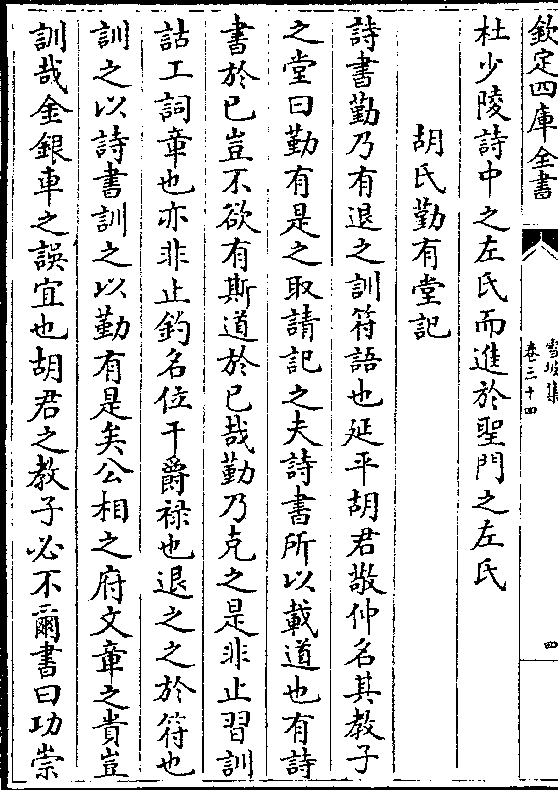 欽定四庫全書
雪坡集
卷三十四
四
杜少陵詩中之左氏而進於聖門之左氏
胡氏勤有堂記
詩書勤乃有退之訓符語也延平胡君敬仲名其教子
之堂曰勤有是之取請記之夫詩書所以載道也有詩
書於已豈不欲有斯道於已哉勤乃克之是非止習訓
詁工詞章也亦非止釣名位干爵禄也退之之於符也
訓之以詩書訓之以勤有是矣公相之府文章之貴豈
訓哉金銀車之誤宜也胡君之教子必不爾書曰功崇